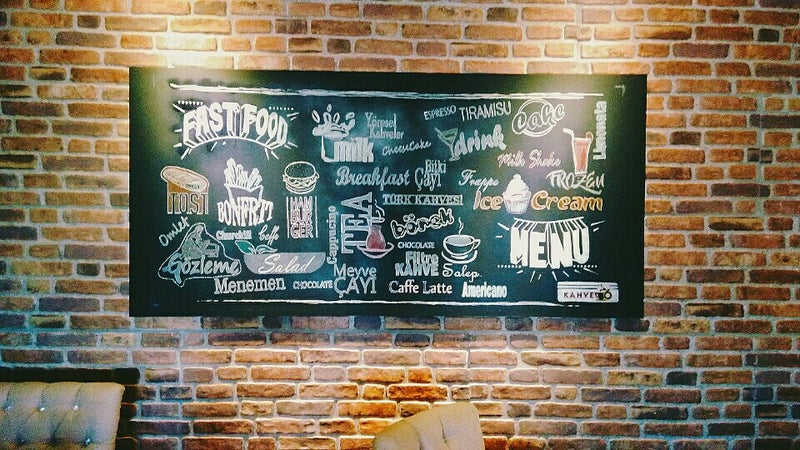 FAST FOOD
milk
Yöresel
Kahveler
CheeseCake
ESPRESSO
TIRAMISU
Cake
drink
Milk Shake
Limonata
TOST
BONFRIT
HAM
BUR
GER
Breakfast
Bitki
Çayı
Frappe
FROZEN
TÜRK KAHVESİ
Ice Cream
Omlet
Churchill
Caffe
Cappucino
TEA
börek
MENU
Gözleme
Salad
CHOCOLATE
Filtre
KAHVE
Salep
Menemen
CHOCOLATE
Meyve
ÇAYI
Caffe Latte
Americano
KAHVE